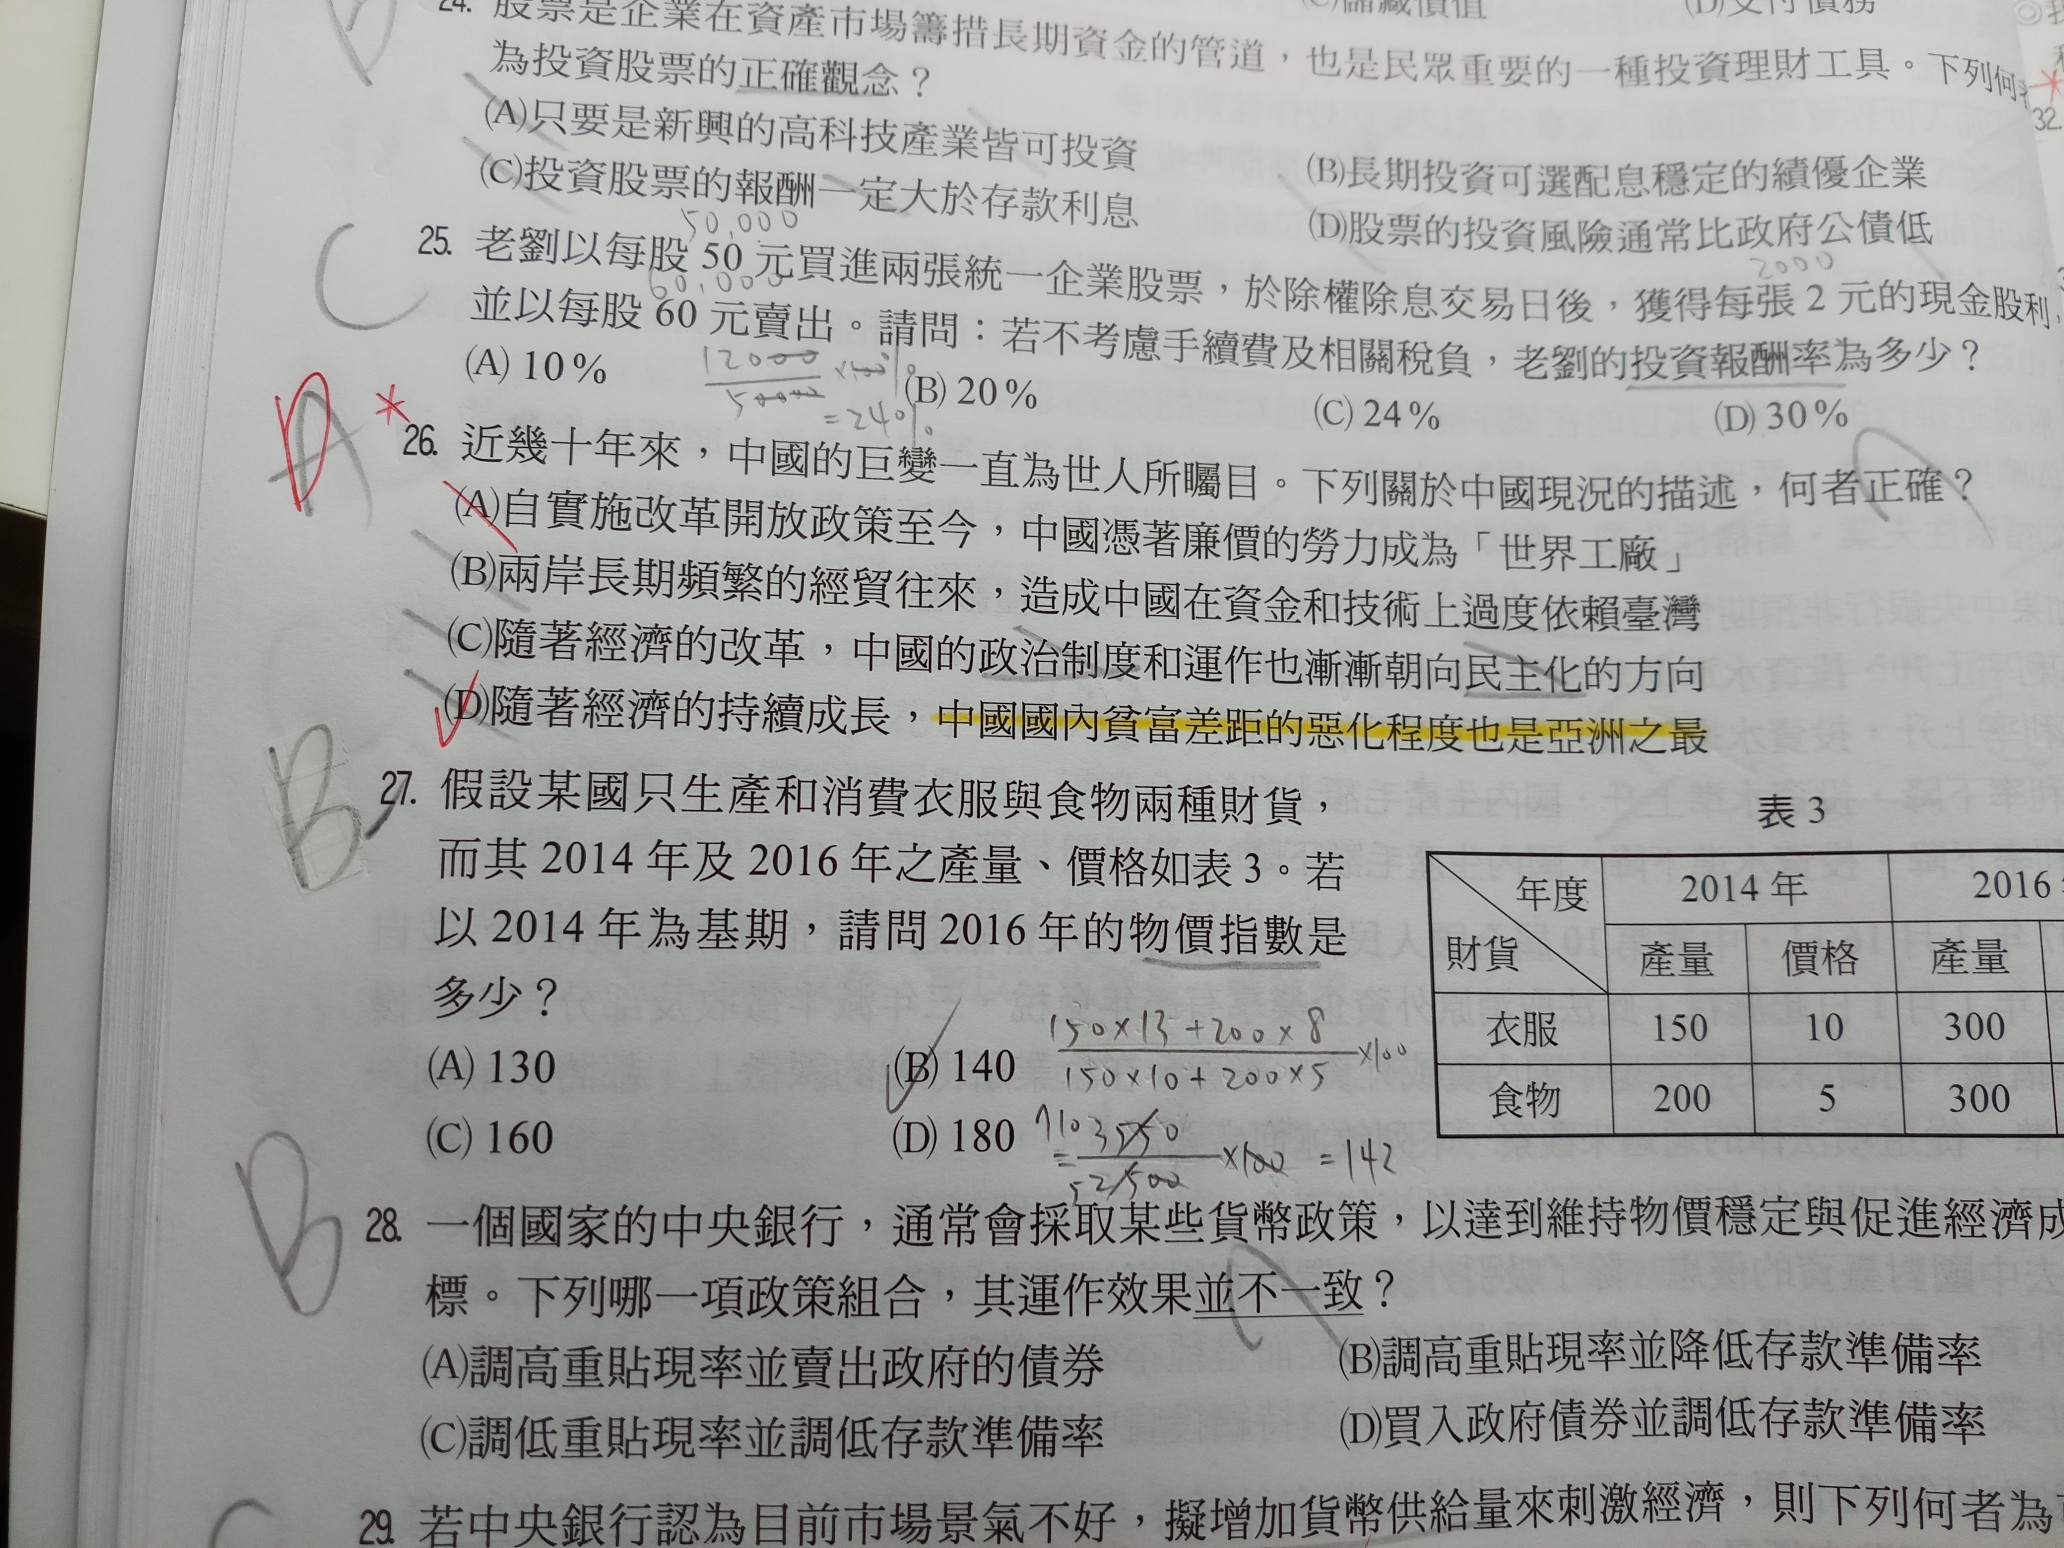 24. 股票是企業在資產市場籌措長期資金的管道，也是民眾重要的一種投資理財工具。下列何
為投資股票的正確觀念？
(A)只要是新興的高科技產業皆可投資
(B)長期投資可選配息穩定的績優企業
(C)投資股票的報酬一定大於存款利息
(D)股票的投資風險通常比政府公債低
32.
50,000
C 25. 老劉以每股 50 元買進兩張統一企業股票，於除權除息交易日後，獲得每張 2 元的現金股利，
60,000
2000
並以每股 60 元賣出。請問：若不考慮手續費及相關稅負，老劉的投資報酬率為多少？
(A) 10% (B) 20% (C) 24% (D) 30%
12000
50000
×100%
=24%
D A * 26. 近幾十年來，中國的巨變一直為世人所矚目。下列關於中國現況的描述，何者正確？
(A)自實施改革開放政策至今，中國憑著廉價的勞力成為「世界工廠」
(B)兩岸長期頻繁的經貿往來，造成中國在資金和技術上過度依賴臺灣
(C)隨著經濟的改革，中國的政治制度和運作也漸漸朝向民主化的方向
(D)隨著經濟的持續成長，中國國內貧富差距的惡化程度也是亞洲之最
B 27. 假設某國只生產和消費衣服與食物兩種財貨，
而其 2014 年及 2016 年之產量、價格如表 3。若
以 2014 年為基期，請問 2016 年的物價指數是
多少？
(A) 130 (B) 140
(C) 160 (D) 180
150×13+200×8
150×10+200×5
×100
3550
2500
×100 =142
表 3
年度 2014 年 2016
財貨 產量 價格 產量
衣服 150 10 300
食物 200 5 300
B 28. 一個國家的中央銀行，通常會採取某些貨幣政策，以達到維持物價穩定與促進經濟成
標。下列哪一項政策組合，其運作效果並不一致？
(A)調高重貼現率並賣出政府的債券 (B)調高重貼現率並降低存款準備率
(C)調低重貼現率並調低存款準備率 (D)買入政府債券並調低存款準備率
29. 若中央銀行認為目前市場景氣不好，擬增加貨幣供給量來刺激經濟，則下列何者為